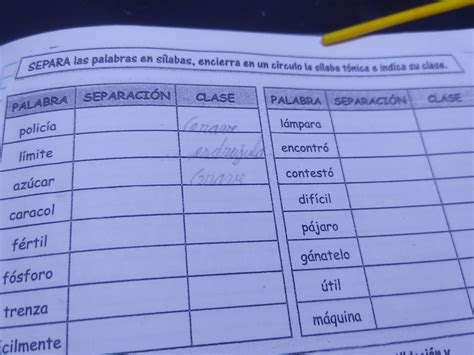 SEPARA las palabras en sílabas, encierra en un círculo la sílaba tónica e indica su clase.
PALABRA SEPARACIÓN CLASE
policía Grave
límite esdrújula
azúcar Grave
caracol
fértil
fósforo
trenza
cilmente
PALABRA SEPARACIÓN CLASE
lámpara
encontró
contestó
difícil
pájaro
gánatelo
útil
máquina